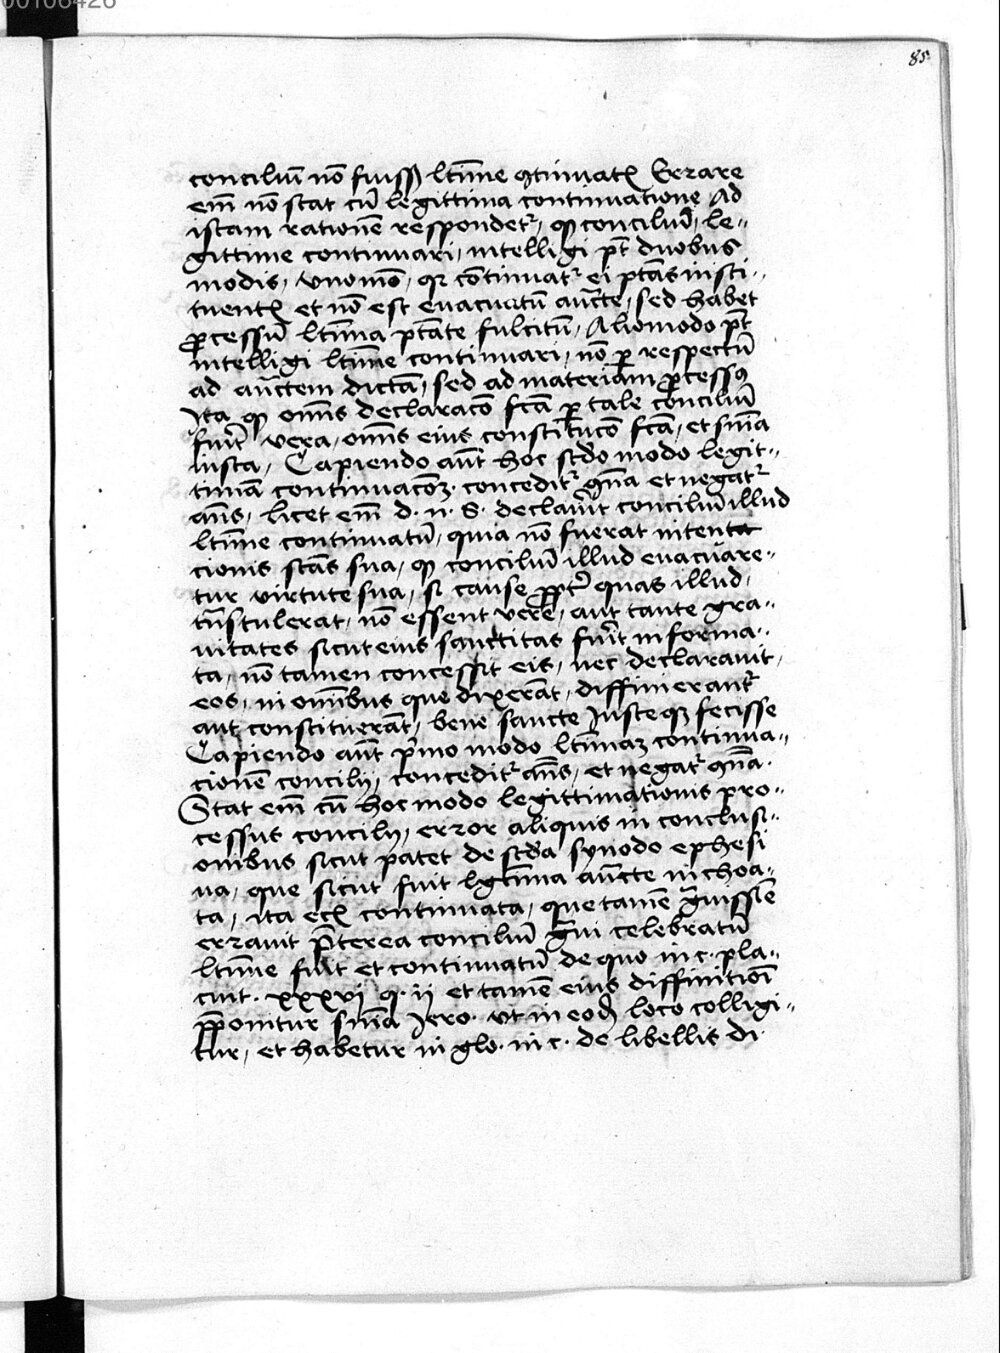 00106426
85
conciliũ nõ fuisse ltĩme ꝯtinuatũ Errare
em̃ nõ stat cũ legittima continuatione Ad
istam rationẽ respondet᷑, ꝙ conciliũ, le-
gittime continuari, intelligi pt̃ duobus
modis, vnomõ, qꝛ cõtinuat᷑ ei ptãs insti-
tuentꝭ et nõ est euacuatũ auct̃e, sed habet
ꝓcessũ ltĩma ptãte fulcitũ, Aliomodo pt̃
intelligi ltĩme continuari, nõ ꝑ respectũ
ad auct̃em dictã, sed ad materiam ꝓcessꝰ
Ita ꝙ om̃is declaracõ fcã ꝑ tale conciliũ
fuit̃ vera, om̃is eius constitucõ fcã, et sñia
iusta, Capiendo aut̃ hoc scd̃o modo legit-
timã continuacõꝫ. concedit᷑ ꝯñа et negat᷑
añs, licet em̃ d. n. S. declauit̃ conciliũ illud
ltĩme continuatũ, quia nõ fuerat intent
cionis scãs sua, ꝙ conciliũ illud euacuare-
tur virtute sua, si cause ꝓpt̃ quas illud,
tñstulerat, nõ essent vere, aut tante gra-
uitates sicut eius sanctitas fuit̃ informa-
ta, nõ tamen concessit eis, nec declarauit,
eos, in om̃ibus que dixerãt, diffinierant᷑
aut constituerãt, bene sancte Iusteqꝫ fecisse
Capiendo aut̃ pĩmo modo ltĩmaꝫ continua-
cionẽ concilij, concedit᷑ añs, et negat᷑ ꝯña.
Stat em̃ cũ hoc modo legittimationis pro-
cessus concilij, error aliquis in conclusi-
onibus sicut patet de scd̃a synodo ephesi
na, que sicut fuit lgtĩma auct̃e inchoa-
ta, ita ecꝭ continuata, que tamẽ g̃uissĩe
errauit Pt̃erea conciliũ g̃ui celebratũ
ltĩme fuit et continuatũ de quo in c. pla-
cuit. xxxvi q. ii et tamẽ eius diffinitiõi
ꝓponitur sñia Iero. vt in eodẽ loco colligi-
tur, et habetur in glo. in c. de libellis di.